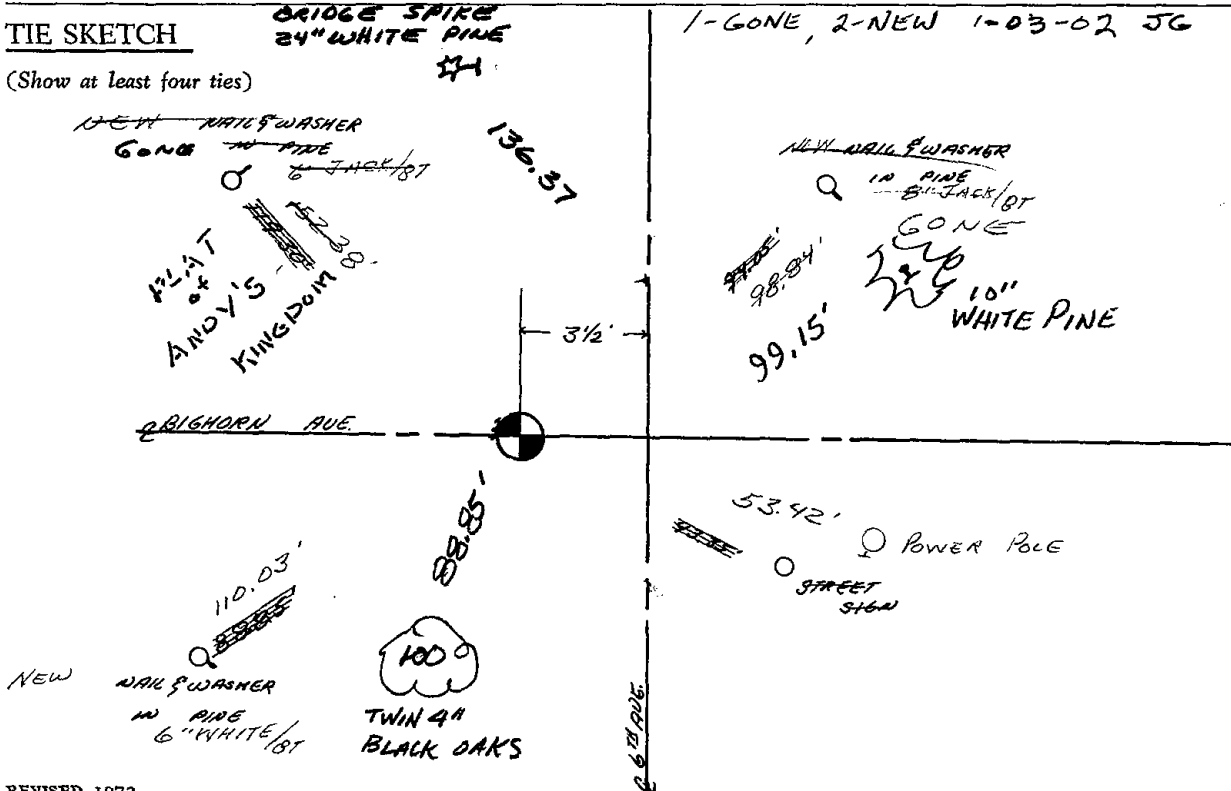 TIE SKETCH
(Show at least four ties)
BRIDGE SPIKE
24" WHITE PINE
1-GONE, 2-NEW 1-03-02 JG
NEW NAIL & WASHER
GONE IN PINE
6" JACK/BT
136.37
52.38'
PLAT
of
ANDY'S
KINGDOM
NEW NAIL & WASHER
IN PINE
8" JACK/BT
GONE
98.84'
99.15'
10"
WHITE PINE
3½'
BIGHORN AVE.
88.85'
53.42'
POWER POLE
STREET
SIGN
110.03'
NEW NAIL & WASHER
IN PINE
6" WHITE/BT
100
TWIN 4"
BLACK OAKS
6TH AVE.